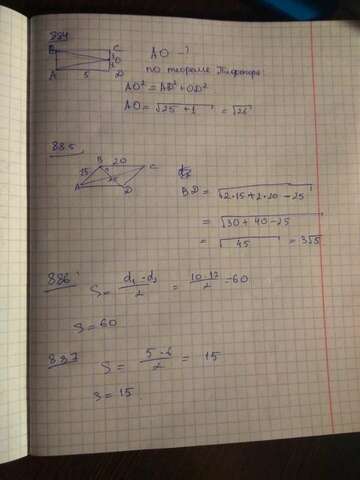 884
B C
O
A 5 D
AO - ?
по теореме Пифагора
AO² = AD² + OD²
AO = √25 + 1 = √26
885
B 20 C
15 25
A D
BD = √2·15 + 2·20 - 25
= √30 + 40 - 25
= √45 = 3√5
886
S = d₁·d₂/2 = 10·12/2 = 60
S = 60
887
S = 5·6/2 = 15
S = 15